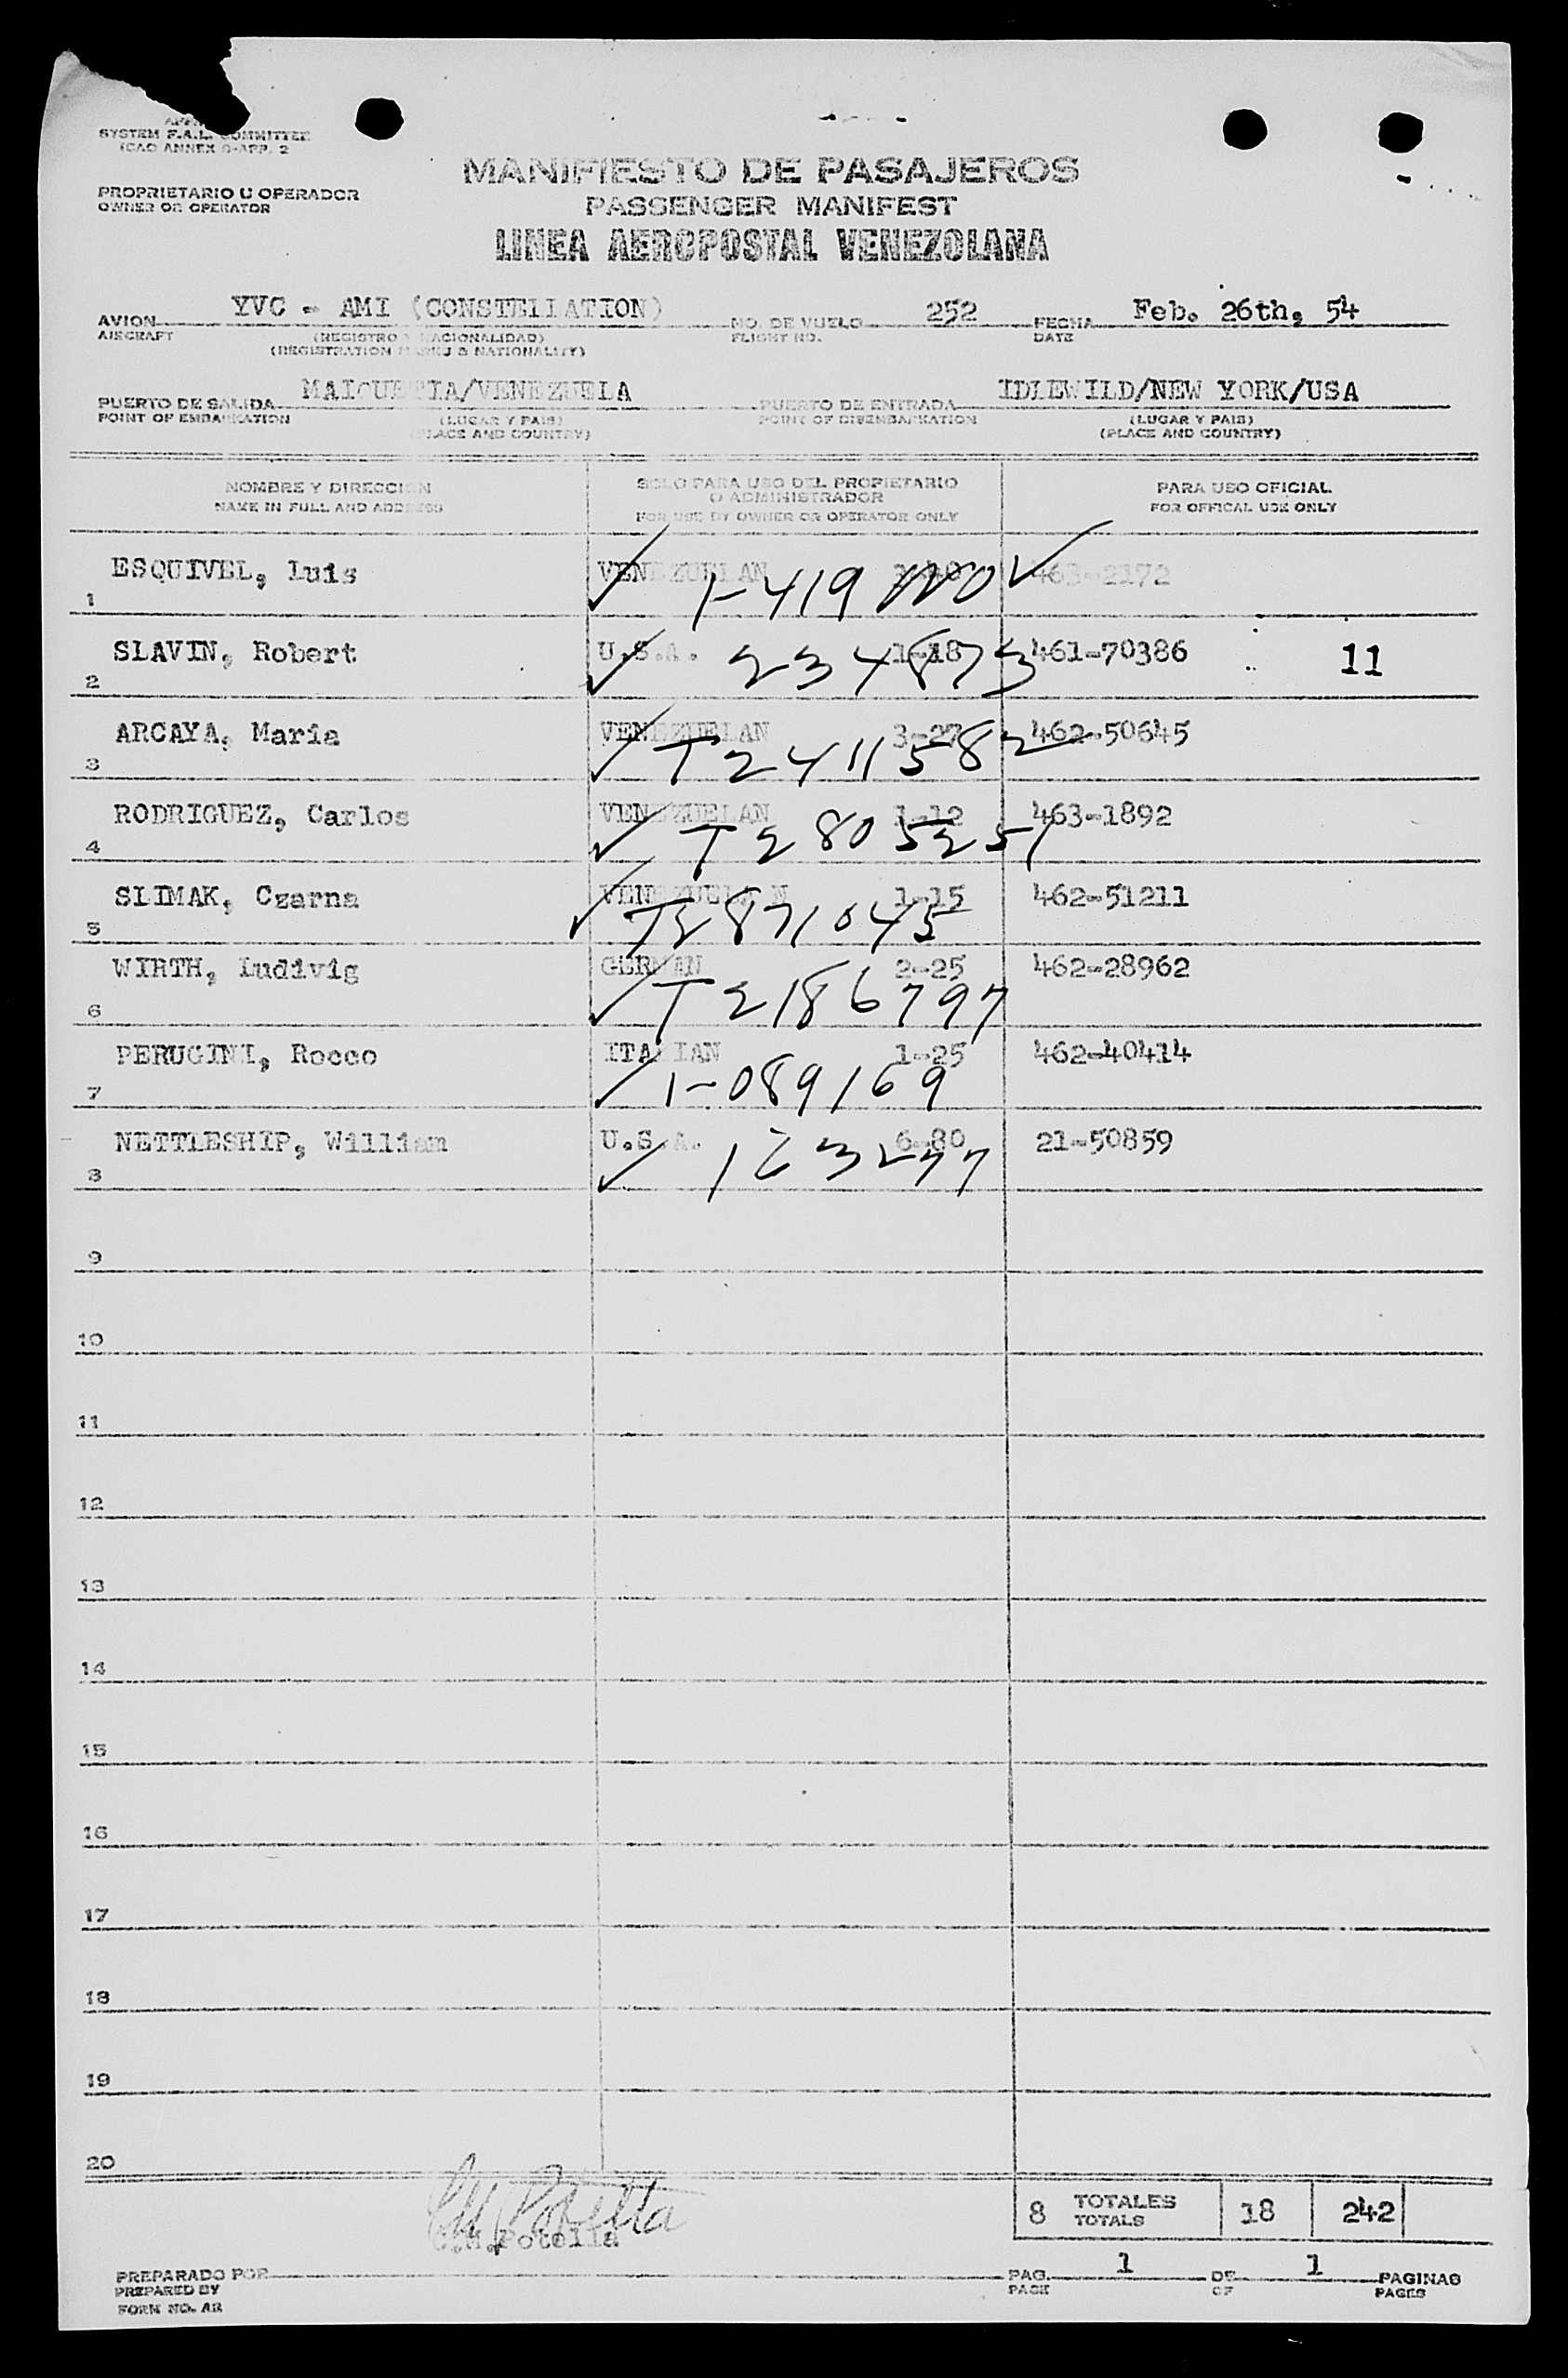 SYSTEM F.A.L. COMMITTEE
ICAO ANNEX 9-APP. 2
PROPRIETARIO U OPERADOR
OWNER OR OPERATOR
MANIFIESTO DE PASAJEROS
PASSENGER MANIFEST
LINEA AEROPOSTAL VENEZOLANA
AVION YVC - AMI (CONSTELLATION) NO. DE VUELO 252 FECHA Feb. 26th, 54
AIRCRAFT (REGISTRO Y NACIONALIDAD) FLIGHT NO. DATE
(REGISTRATION MARKS & NATIONALITY)
PUERTO DE SALIDA MAIQUETIA/VENEZUELA PUERTO DE ENTRADA IDLEWILD/NEW YORK/USA
POINT OF EMBARKATION (LUGAR Y PAIS) POINT OF DISEMBARKATION (LUGAR Y PAIS)
(PLACE AND COUNTRY) (PLACE AND COUNTRY)
NOMBRE Y DIRECCION SOLO PARA USO DEL PROPIETARIO PARA USO OFICIAL
O ADMINISTRADOR
NAME IN FULL AND ADDRESS FOR USE BY OWNER OR OPERATOR ONLY FOR OFFICAL USE ONLY
ESQUIVEL, Luis VENEZUELAN 463-2172
1 ✓ 1-419 ✓
SLAVIN, Robert U.S.A. 1-18 461-70386 11
2 ✓ 234873
ARCAYA, Maria VENEZUELAN 3-27 462-50645
3 ✓ T2411582
RODRIGUEZ, Carlos VENEZUELAN 1-12 463-1892
4 ✓ T2805251
SLIMAK, Czarna VENEZUELAN 1-15 462-51211
5 ✓ T2871045
WIRTH, Ludivig GERMAN 2-25 462-28962
6 ✓ T2186797
PERUGINI, Rocco ITALIAN 1-25 462-40414
7 ✓ 1-089169
NETTLESHIP, William U.S.A. 6-80 21-50859
8 ✓ 163277
9
10
11
12
13
14
15
16
17
18
19
20
8 TOTALES 18 242
TOTALS
C.M. Potella
C.M. Potella
PREPARADO POR PAG. 1 DE 1 PAGINAS
PREPARED BY PAGE OF PAGES
FORM NO. AR